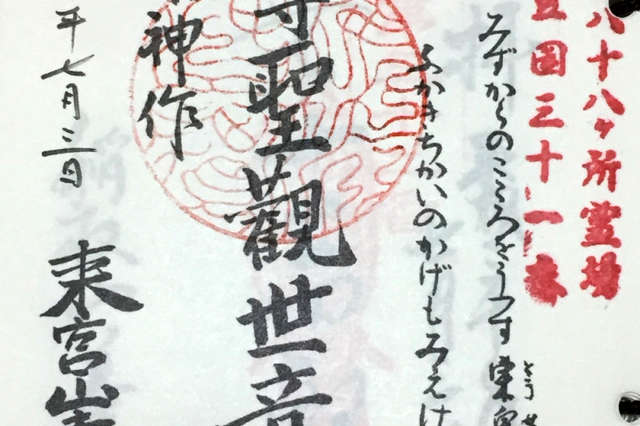 八十八ヶ所霊場
豆国三十一番
みずからのこころをうつす
ふかきちかいのかげもみえけ
聖觀世音
神作
平七月三日
来宮山